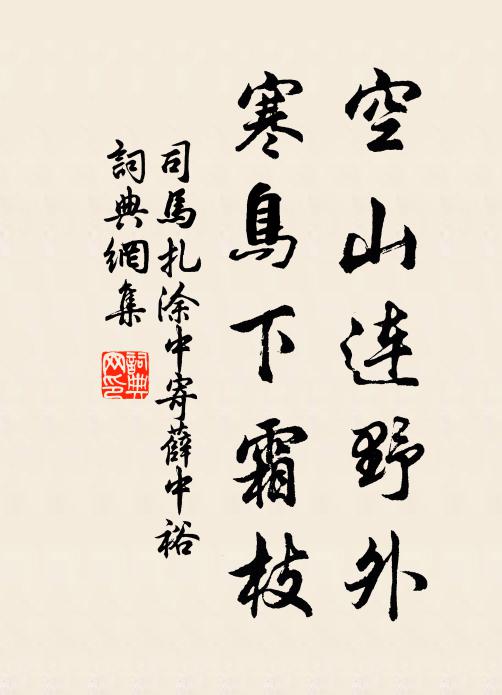 空山連野外
寒鳥下霜枝
司馬扎涂中寄薛中裕
詞典網集
詞典网印